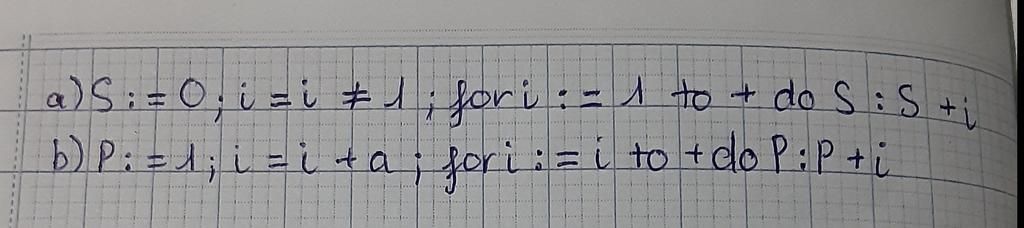 a) S := 0; i = i ≠ 1; for i := 1 to + do S : S + i
b) P := 1; i = i + a; for i := i to + do P : P + i